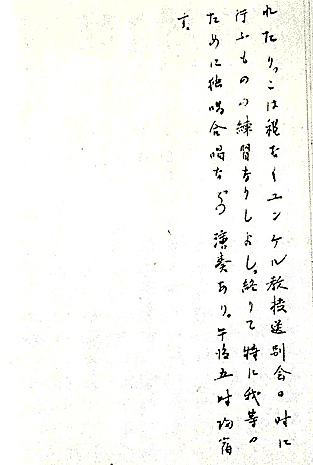 れたり。こは程なくユンケル教授送別会の時に
行ふものの練習なりしよし。終りて特に我等の
ために独唱合唱などの演奏あり。午后五時帰宿
す。